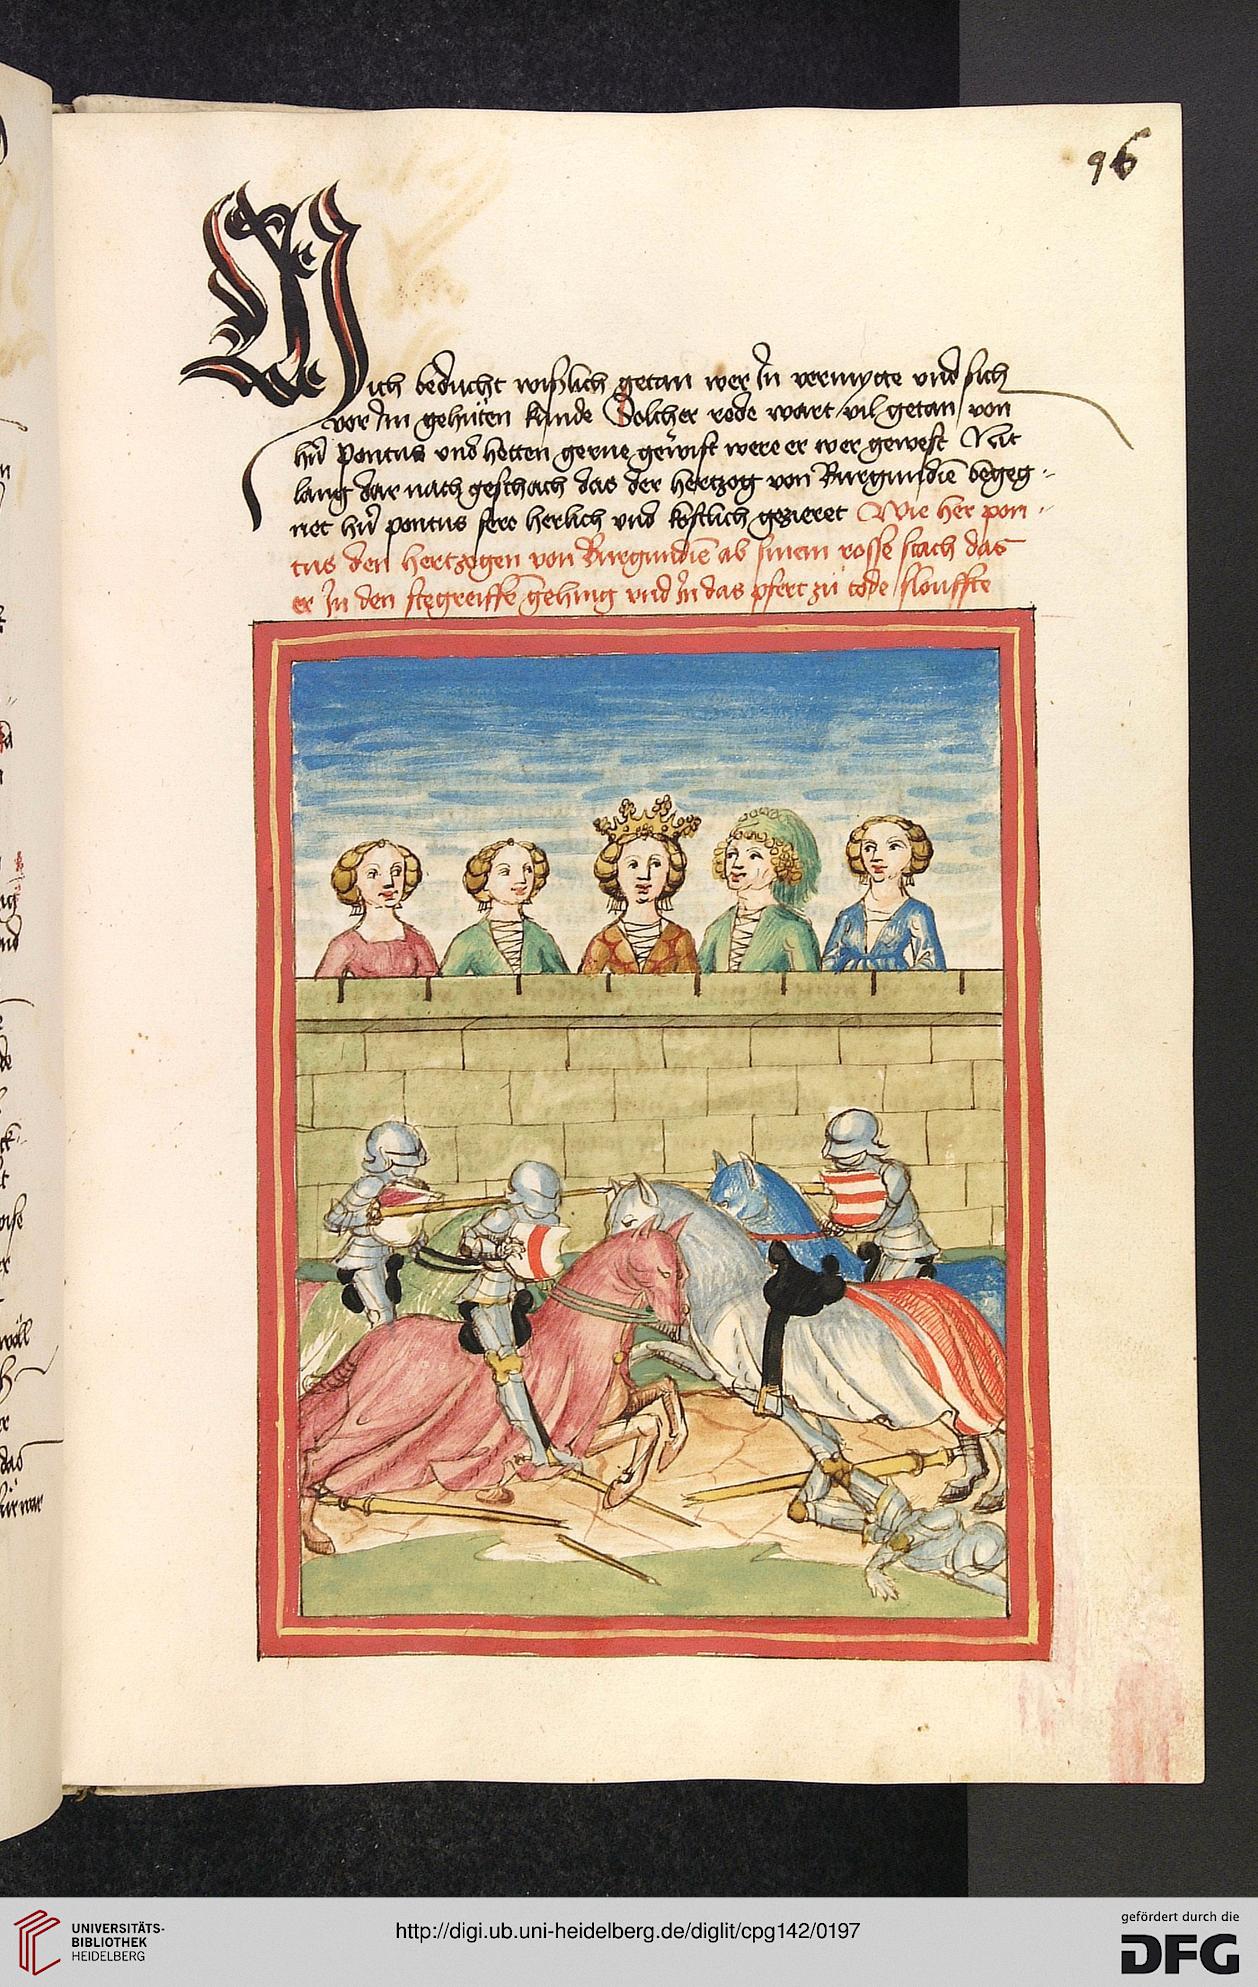 96
Mich beducht wißlich getan wer In vermytte und sich
vor Im gehuten kunde Solcher rede wart vil getan von
hern Pontus und hetten gerne gewist were er wer gewest Nit
lang dar nach geschach das der hertzog von Burgundie begeg-
net hern pontus sere herlich und kostlich gezieret Wie her pon-
tus den hertzogen von Burgundie ab sinem rosse stach das
er In den stegreiffe gehing und In das pfert zu tode slouffte
UNIVERSITÄTS-
BIBLIOTHEK
HEIDELBERG
http://digi.ub.uni-heidelberg.de/diglit/cpg142/0197
gefördert durch die
DFG